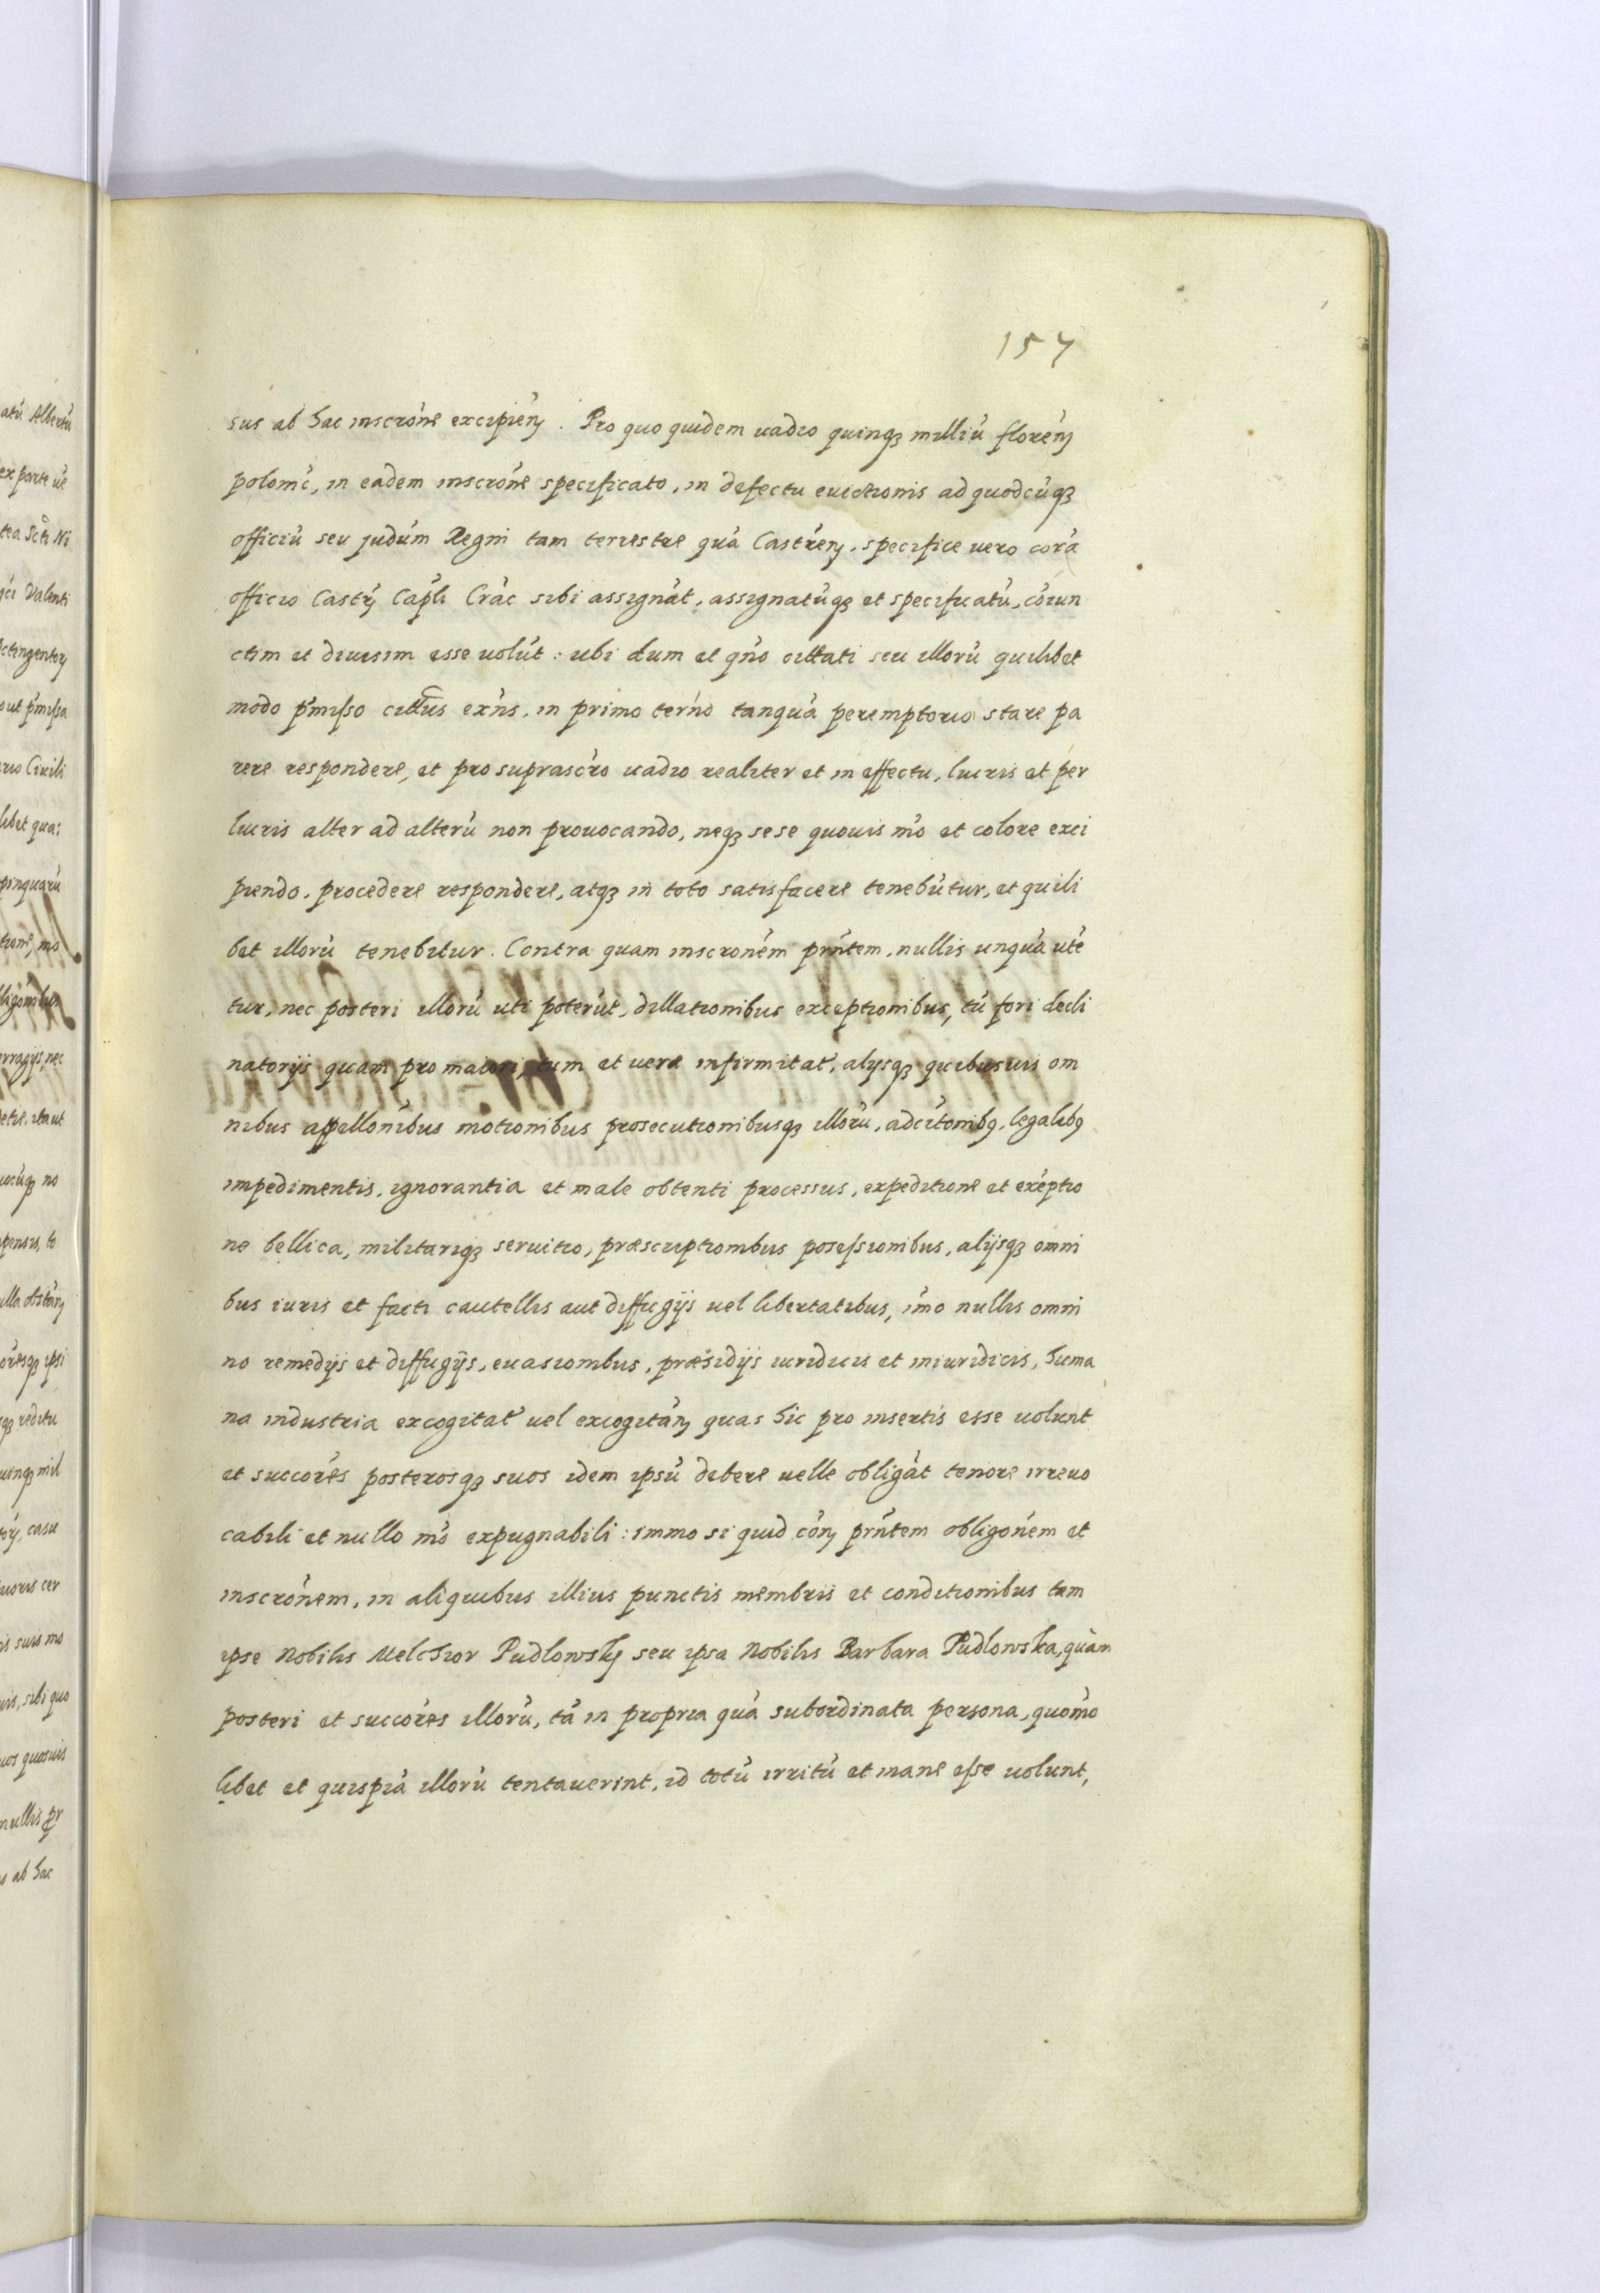 157
sus ab hac inscrone excipien. Pro quo quidem uadio quinq3 milliu floren
polonic, in eadem inscrone specificato, in defectu euictionis ad quodcuq3
officiu seu judum Regni tam terrestre qua Castren. specifice vero cora
officio Castr Capli Crac sibi assignat, assignatuq3 et specificatu, coiun
ctim et diuisim esse uolut : ubi dum et qno cittati seu illoru quilibet
modo pmisso exns, in primo terno tanqua peremptorio stare pa
rere respondere, et pro suprascro uadio realiter et in effectu, lucris et per
lucris alter ad alteru non prouocando, neq3 sese quouis mo et colore exci
piendo, procedere respondere, atq3 in toto satisfacere tenebutur, et quili
bet illoru tenebitur. Contra quam inscronem prntem, nullis unqua ute
tur, nec posteri illoru uti poterut, dillationibus exceptionibus, tu fori decli
natorijs quam pro maiori, tum et uera infirmitat, alijsq3 quibusuis om
nibus appellonibus motionibus prosecutionibusq3 illoru, adcitonib9, legalib9
impedimentis, ignorantia et male obtenti processus, expeditione et exeptio
ne bellica, militariq3 seruitio, præscriptionibus posessionibus, alijsq3 omni
bus iuris et facti cautellis aut diffugijs uel libertatibus, imo nullis omni
no remedijs et diffugijs, euasionibus, præsidijs iuridicis et iniuridicis, huma
na industria excogitat uel excogitan quas hic pro insertis esse uolunt
et succores posterosq3 suos idem ipsu debere uelle obligat tenore irreuo
cabili et nullo mo expugnabili : immo si quid con prntem obligonem et
inscronem, in aliquibus illius punctis membris et conditionibus tam
ipse Nobilis Melchior Pudlowsky seu ipsa Nobilis Barbara Pudlowska, quam
posteri et succores illoru, ta in propria qua subordinata persona, quomo
libet et quispia illoru tentauerint, id totu irritu et inane esse uolunt,